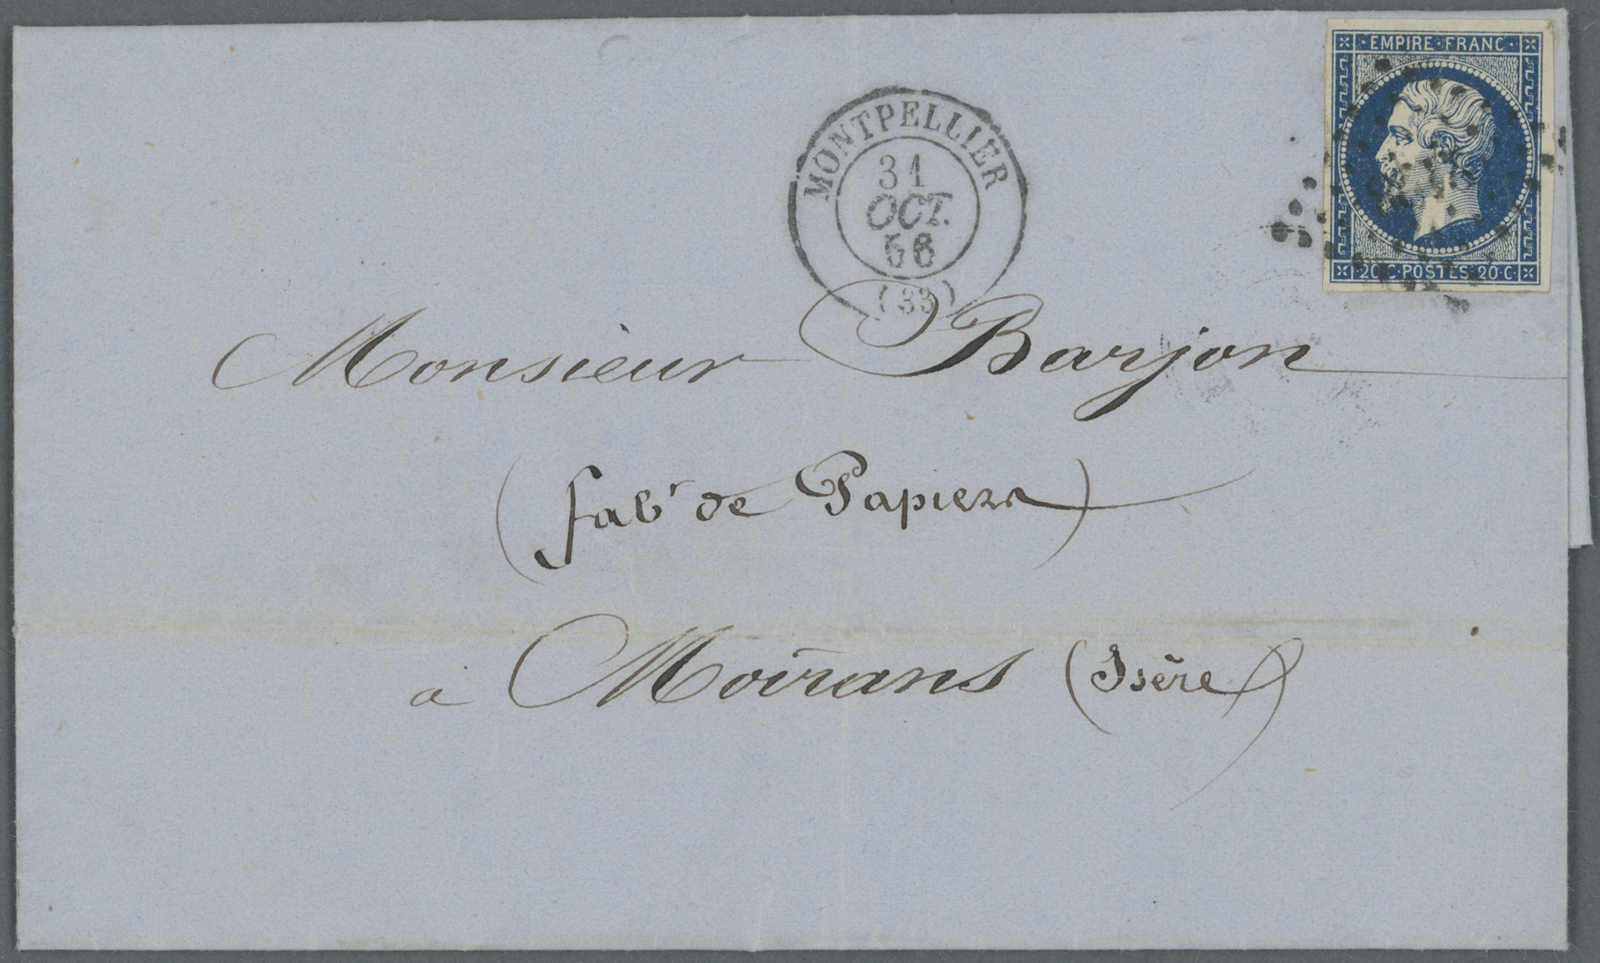 EMPIRE · FRANC ·
20 · C · POSTES · 20 · C ·
MONTPELLIER
31
OCT.
56
(33)
Monsieur Barjon
(fabt de Papiers)
a Moirans (Isère)